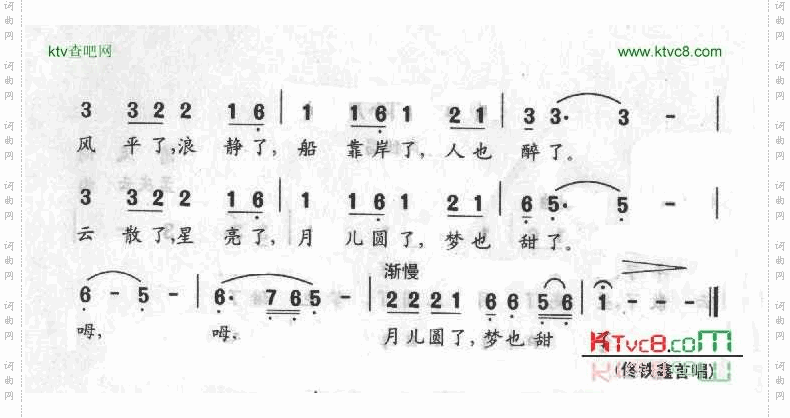 ktv查吧网 www.ktvc8.com
3 3 2 2 1 6 | 1 1 6 1 2 1 | 3 3· 3 - |
风 平了,浪 静了, 船 靠岸了, 人也 醉了。
3 3 2 2 1 6 | 1 1 6 1 2 1 | 6 5· 5 - |
云 散了,星 亮了, 月 儿圆了, 梦也 甜了。
渐慢
6 - 5 - | 6· 7 6 5 - | 2 2 2 1 6 6 5 6 | 1 - - - ‖
呣, 呣, 月儿圆了,梦也甜
KTvc8.com
(佟铁鑫首唱)
词曲网
词曲网
词曲网
词曲网
词曲网
词曲网
词曲网
词曲网